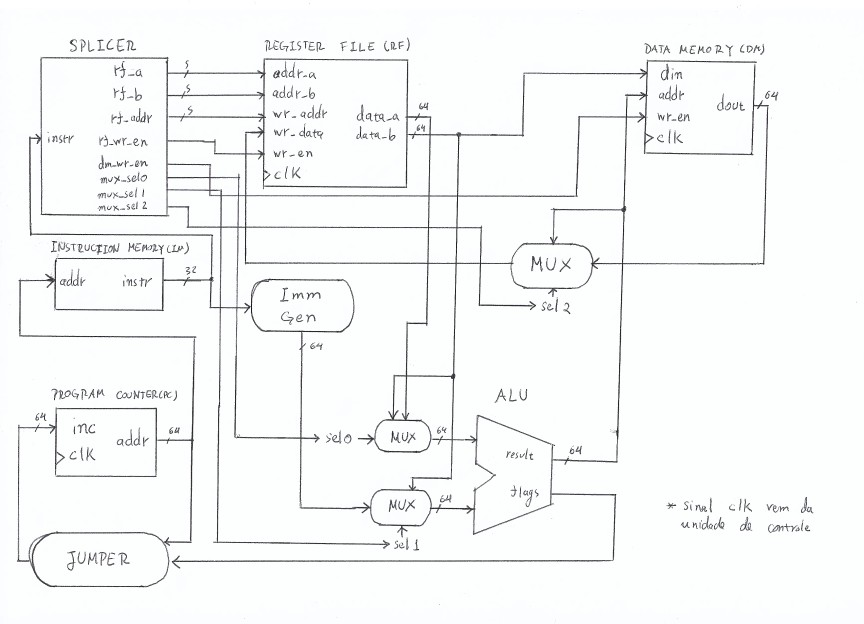 SPLICER
rf_a
rf_b
rf_addr
instr
rf_wr_en
dm_wr_en
mux_sel0
mux_sel1
mux_sel2
5
5
5
REGISTER FILE (RF)
addr_a
addr_b
wr_addr
wr_data
wr_en
clk
data_a
data_b
64
64
DATA MEMORY (DM)
din
addr
wr_en
clk
dout
64
INSTRUCTION MEMORY (IM)
addr
instr
32
Imm
Gen
64
MUX
sel2
PROGRAM COUNTER (PC)
64
inc
clk
addr
64
sel0
MUX
64
MUX
64
sel1
ALU
result
flags
64
JUMPER
* sinal clk vem da
unidade de controle